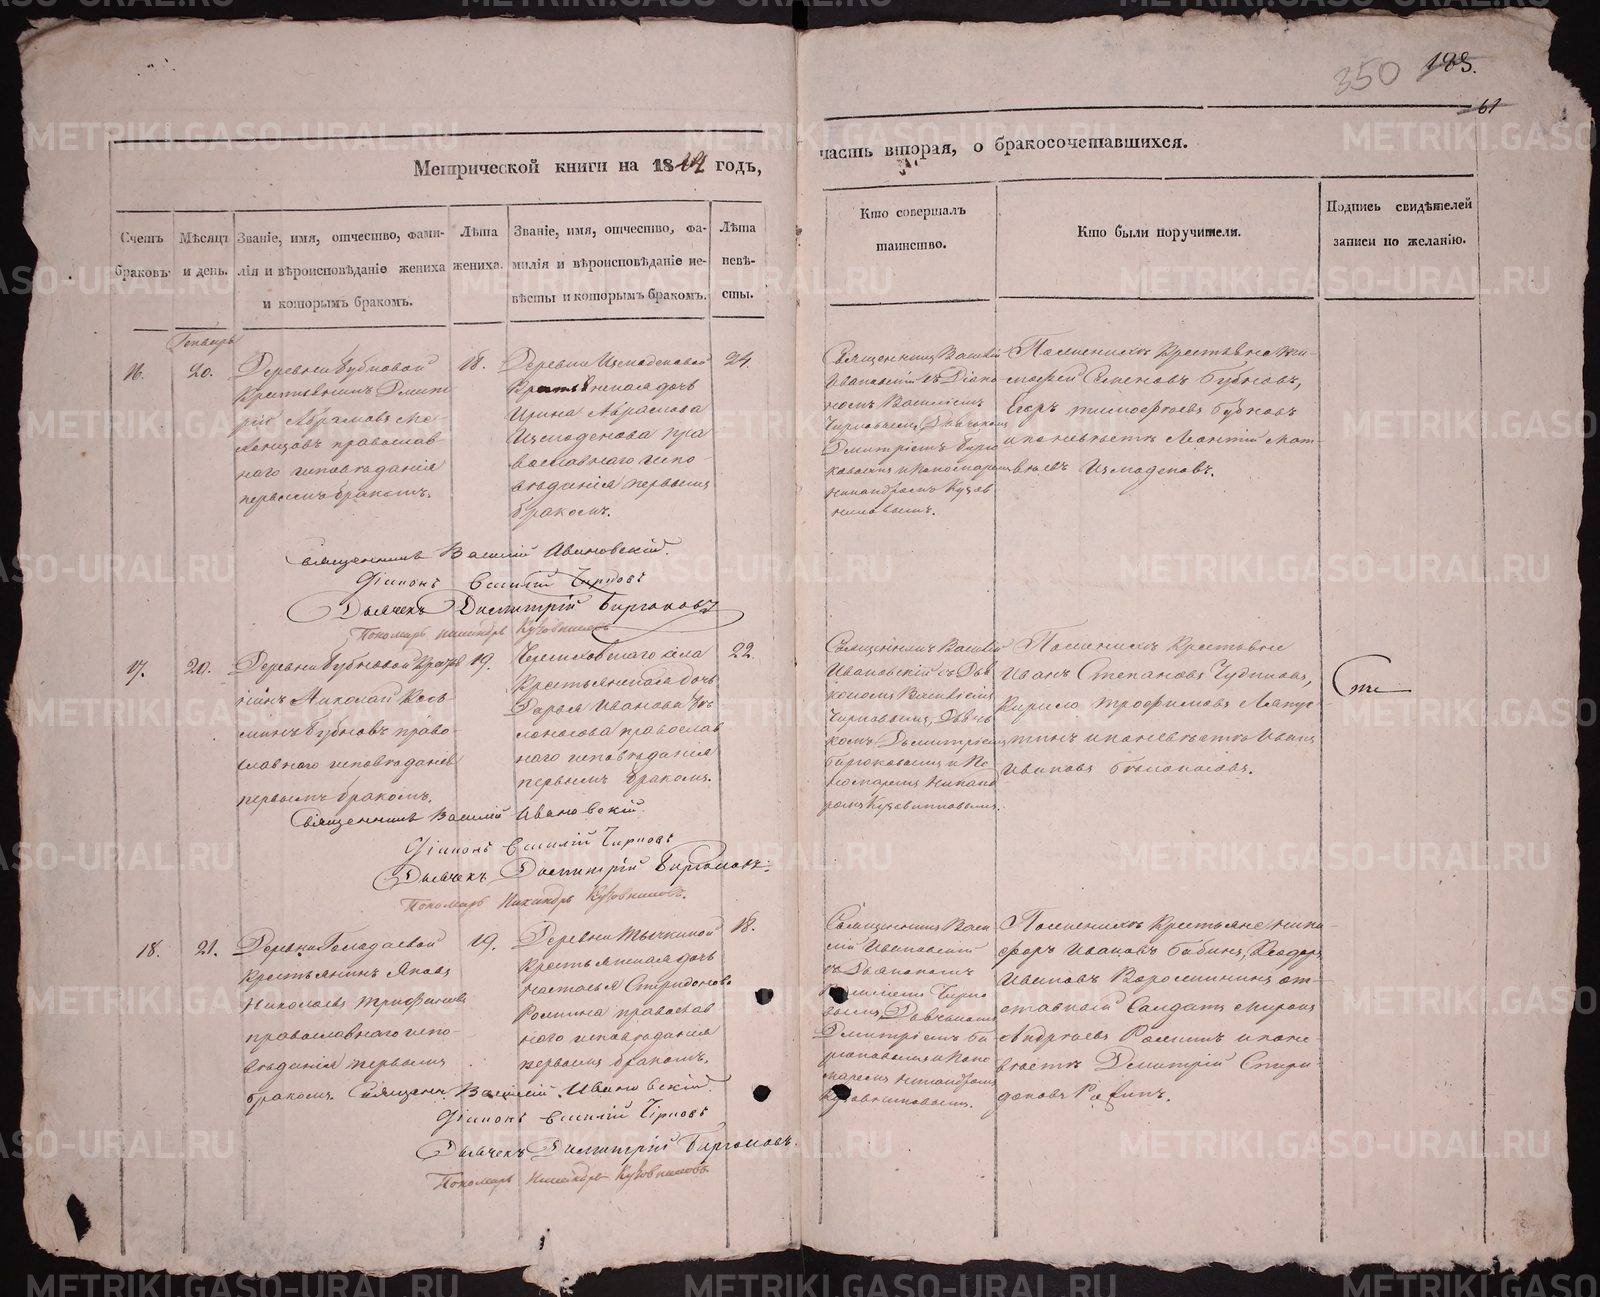 350 183.
61
Метрической книги на 1844 годъ,
часть вторая, о бракосочетавшихся.
Счетъ браковъ.
Мѣсяцъ и день.
Званіе, имя, отчество, фами-
лія и вѣроисповѣданіе жениха
и которымъ бракомъ.
Лѣта
жениха.
Званіе, имя, отчество, фа-
милія и вѣроисповѣданіе не-
вѣсты и которымъ бракомъ.
Лѣта
невѣ-
сты.
Кто совершалъ
таинство.
Кто были поручители.
Подпись свидѣтелей
записи по желанію.
Генварь
16.
20.
Деревни Бубновой
Крестьянинъ Дмит
рій Абрамовъ
православ
наго исповѣданія
первымъ бракомъ.
18.
Деревни Измоденовой
Крестьянская дочь
Ирина Абрамова
Измоденова пра
вославнаго испо-
вѣданія первымъ
бракомъ.
24.
Священникъ Василій
Ивановскій съ Діако
номъ Василіемъ
Чирковымъ, Дьячкомъ
Дмитріемъ Бирю
ковымъ и Пономаремъ
Никандромъ Кузов
никовымъ.
Поженихѣ Крестьяне Ти-
мофей Семеновъ Бубновъ,
Егоръ Тимофѣевъ Бубновъ
и поневѣстѣ Леонтій Мат-
вѣевъ Измоденовъ.
Священникъ Василій Ивановскій.
Діаконъ Василій Чирковъ
Дьячекъ Димитрій Бирюковъ
Пономарь Никандръ Кузовниковъ
17.
20.
Деревни Бубновой Кресть
янинъ Николай Козь
минъ Бубновъ право-
славнаго исповѣданія
первымъ бракомъ.
19.
села
Крестьянская дочь
Дарья Иванова Бѣ
лоносова православ
наго исповѣданія
первымъ бракомъ.
22.
Священникъ Василій
Ивановскій съ Діа
кономъ Василіемъ
Чирковымъ, Дьяч
комъ Дмитріемъ
Бирюковымъ и По
номаремъ Никанд
ромъ Кузовниковымъ.
Поженихѣ Крестьяне
Иванъ Степановъ Чудиновъ,
Кирило Трофимовъ Лапус-
тинъ и поневѣстѣ Иванъ
Ивановъ Бѣлоносовъ.
Священникъ Василій Ивановскій.
Діаконъ Василій Чирковъ
Дьячекъ Димитрій Бирюковъ.
Пономарь Никандръ Кузовниковъ.
18.
21.
Деревни
Крестьянинъ Яковъ
Николаевъ Трифановъ
православнаго испо-
вѣданія первымъ
бракомъ.
19.
Деревни Тычкиной
Крестьянская дочь
Настасья Спиридонова
Ромина православ
наго исповѣданія
первымъ бракомъ.
18.
Священникъ Васи
лій Ивановскій
съ Діакономъ
Василіемъ Чирко
вымъ, Дьячкомъ
Дмитріемъ Би
рюковымъ и Поно
маремъ Никандромъ
Кузовниковымъ.
Поженихѣ Крестьяне Ники-
форъ Ивановъ Бабинъ, Ѳеодоръ
Ивановъ Ворошнинъ от-
ставной Солдатъ Миронъ
Андрѣевъ Роминъ и поне-
вѣстѣ Дмитрій Спири-
доновъ Роминъ.
Священникъ Василій Ивановскій.
Діаконъ Василій Чирковъ
Дьячекъ Димитрій Бирюковъ.
Пономарь Никандръ Кузовниковъ
METRIKI.GASO-URAL.RU